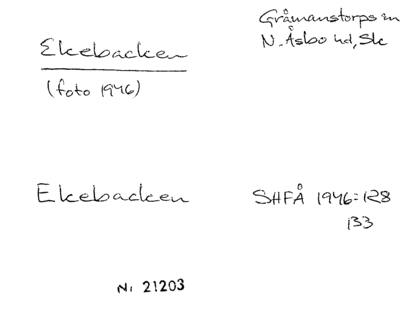 Ekebacken
(foto 1946)
Gråmanstorps sn
N. Åsbo hd, Sk
Ekebacken
SHFÅ 1946:128
133
N: 21203